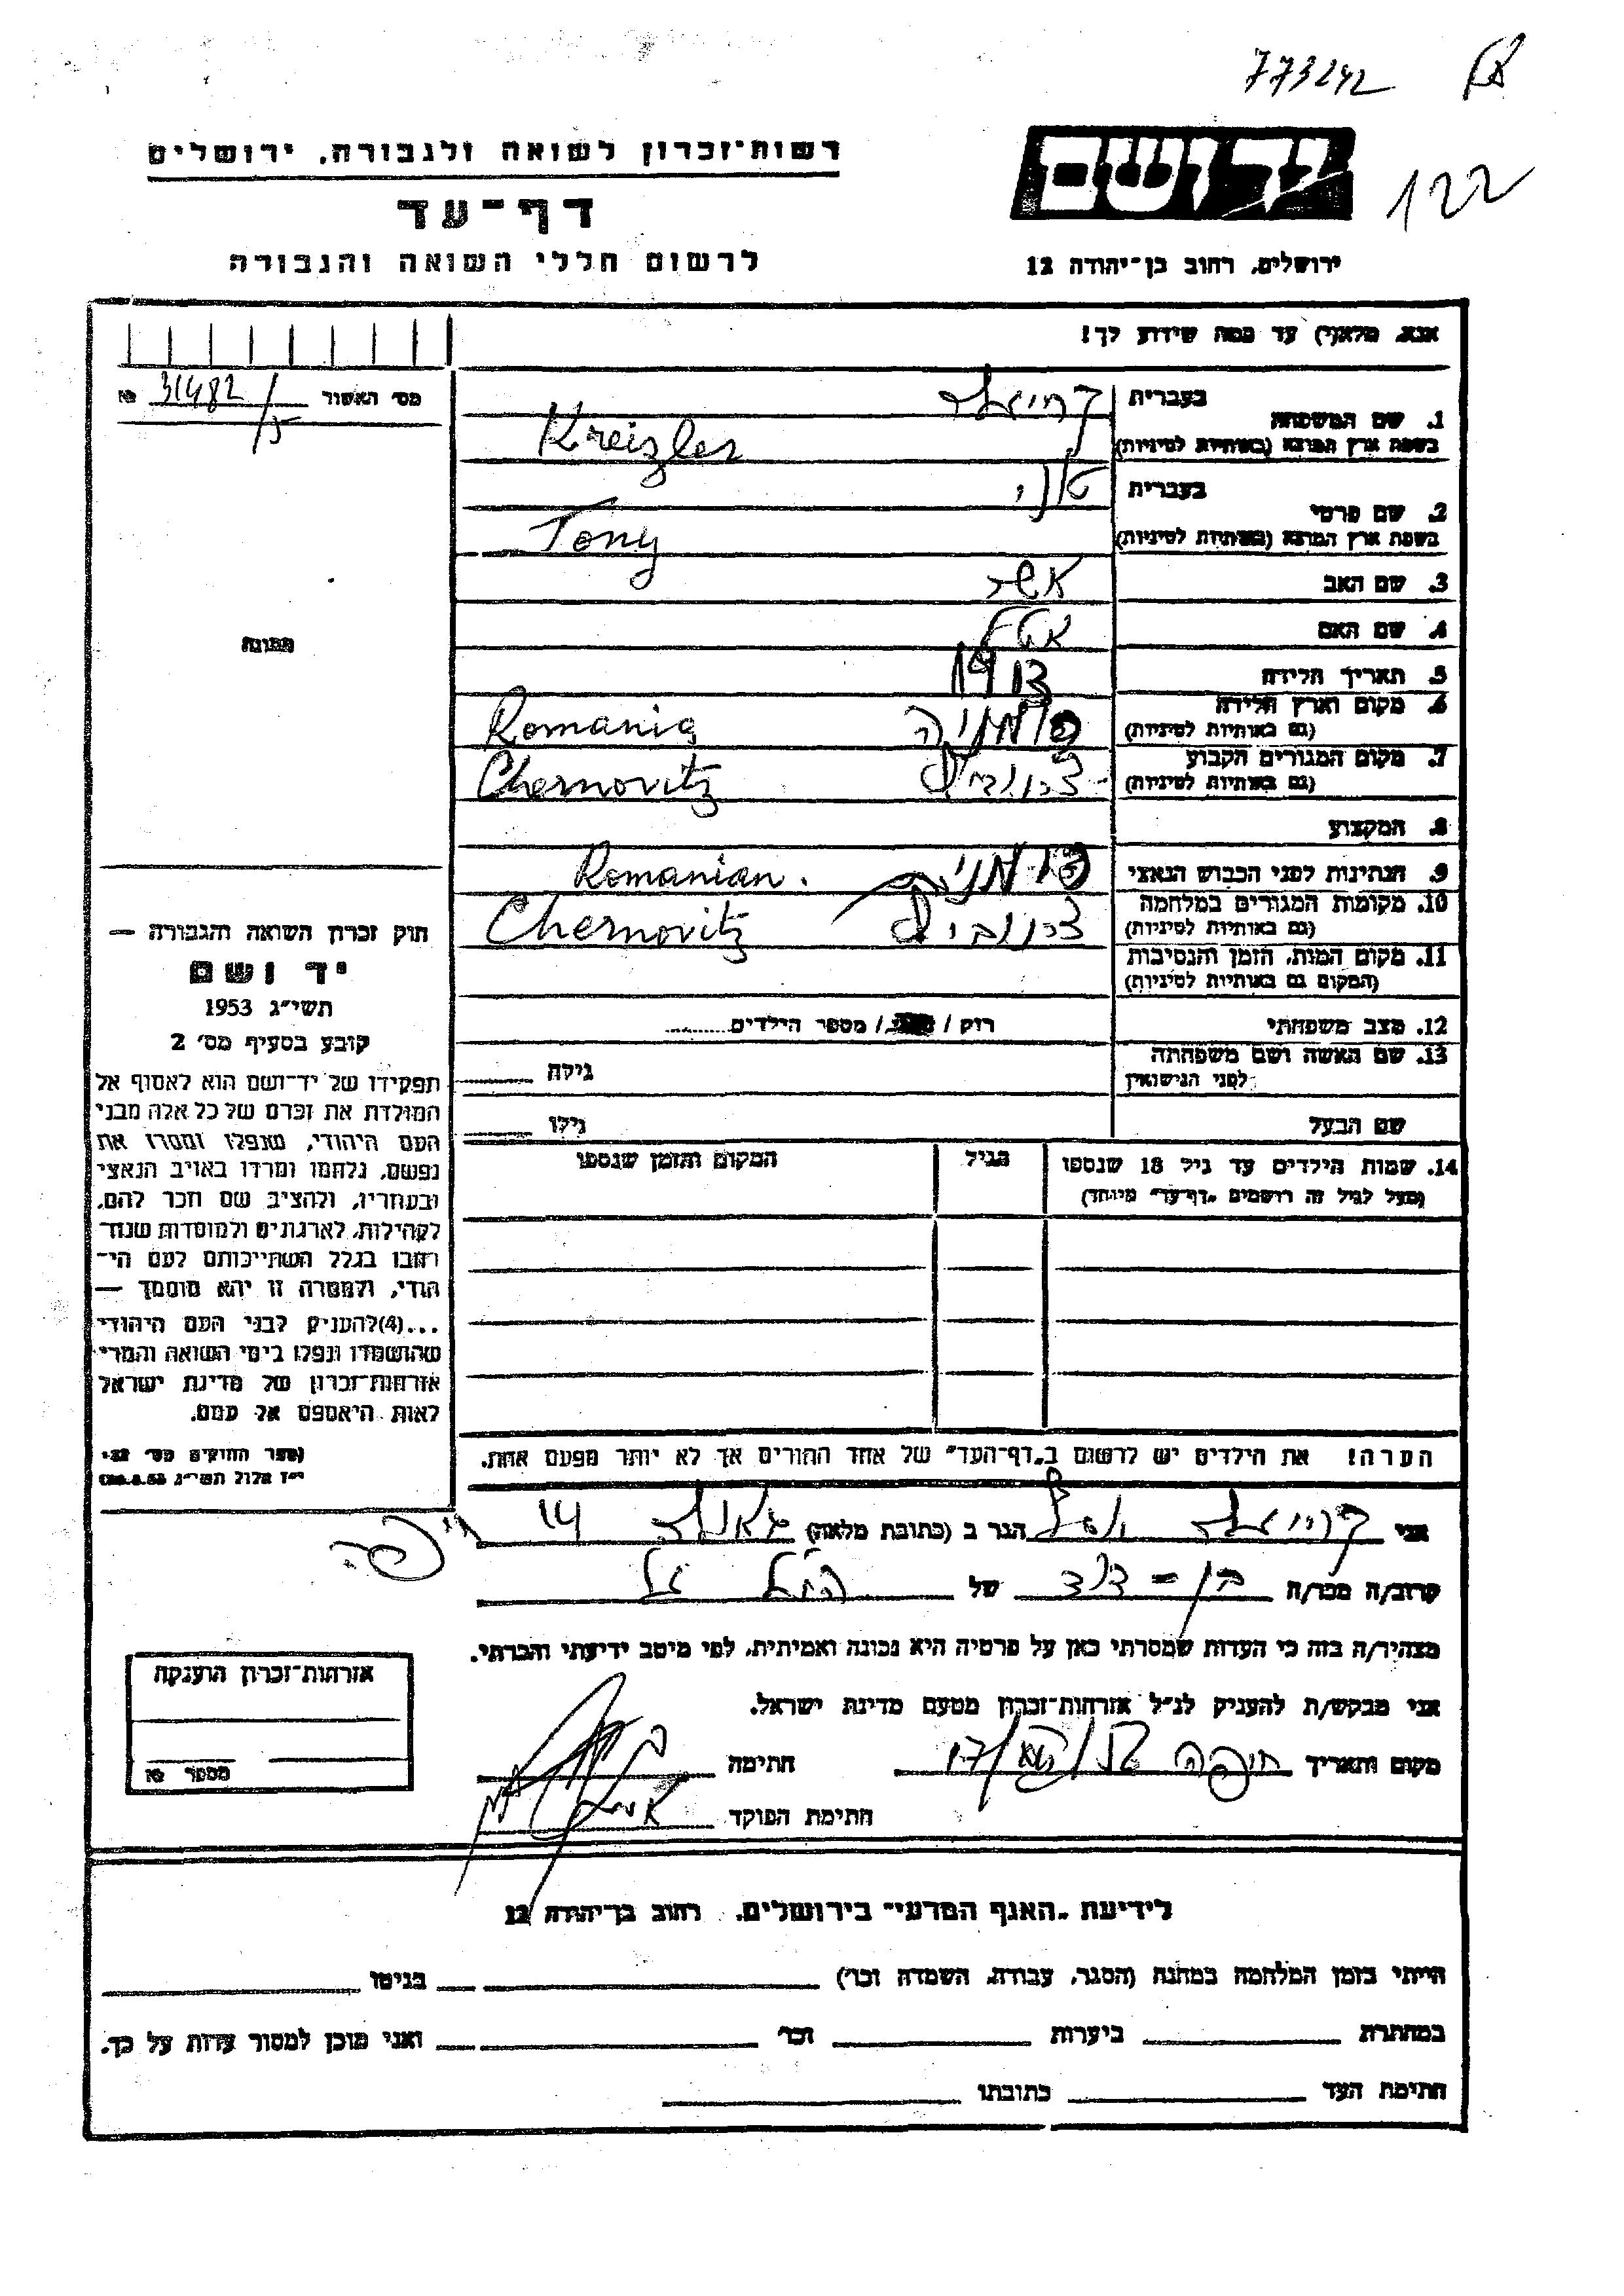 773242
122
יד ושם
ירושלים, רחוב בן־יהודה 12
רשות־זכרון לשואה ולגבורה, ירושלים
דף־עד
לרשום חללי השואה והגבורה
אנא, מלא(י) עד כמה שידוע לך!
מס׳ האשור 31482 №
1. שם המשפחה
בעברית
בשפת ארץ המוצא (באותיות לטיניות) Kreizler
2. שם פרטי
בעברית טוני
בשפת ארץ המוצא (באותיות לטיניות) Tony
3. שם האב אשר
4. שם האם
5. תאריך הלידה 1913
6. מקום וארץ הלידה (גם באותיות לטיניות) רומניה Romania
7. מקום המגורים הקבוע (גם באותיות לטיניות) Chernovitz
8. המקצוע
9. הנתינות לפני הכבוש הנאצי רומנית Romanian.
10. מקומות המגורים במלחמה (גם באותיות לטיניות) Chernovitz
11. מקום המות, הזמן והנסיבות (המקום גם באותיות לטיניות)
12. מצב משפחתי רוק / / מספר הילדים
13. שם האשה ושם משפחתה לפני הנישואין גילה
שם הבעל גילו
14. שמות הילדים עד גיל 18 שנספו (מעל לגיל זה רושמים „דף־עד״ מיוחד) הגיל המקום והזמן שנספו
הערה! את הילדים יש לרשום ב„דף־העד״ של אחד ההורים אך לא יותר מפעם אחת.
תמונה
חוק זכרון השואה והגבורה —
יד ושם
תשי״ג 1953
קובע בסעיף מס׳ 2
תפקידו של יד־ושם הוא לאסוף אל
המולדת את זכרם של כל אלה מבני
העם היהודי, שנפלו ומסרו את
נפשם, נלחמו ומרדו באויב הנאצי
ובעוזריו, ולהציב שם וזכר להם,
לקהילות, לארגונים ולמוסדות שנח־
רבו בגלל השתייכותם לעם הי־
הודי, ולמטרה זו יהא מוסמך —
...(4)להעניק לבני העם היהודי
שהושמדו ונפלו בימי השואה והמרי
אזרחות־זכרון של מדינת ישראל
לאות היאספם אל עמם.
(ספר החוקים מס׳ 132
י״ז אלול תשי״ג 28.8.53)
אני הגר ב (כתובת מלאה) 14 חיפה
קרוב/ה מכר/ה בן-דוד של
מצהיר/ה בזה כי העדות שמסרתי כאן על פרטיה היא נכונה ואמיתית, לפי מיטב ידיעתי והכרתי.
אני מבקש/ת להעניק לנ״ל אזרחות־זכרון מטעם מדינת ישראל.
מקום ותאריך חיפה חתימה
חתימת הפוקד
אזרחות־זכרון הוענקה
מספר №
לידיעת „האגף המדעי״ בירושלים, רחוב בן־יהודה 12
הייתי בזמן המלחמה במחנה (הסגר, עבודת, השמדה וכו׳) בגיטו
במחתרת ביערות וכו׳ ואני מוכן למסור עדות על כך.
חתימת העד כתובתו